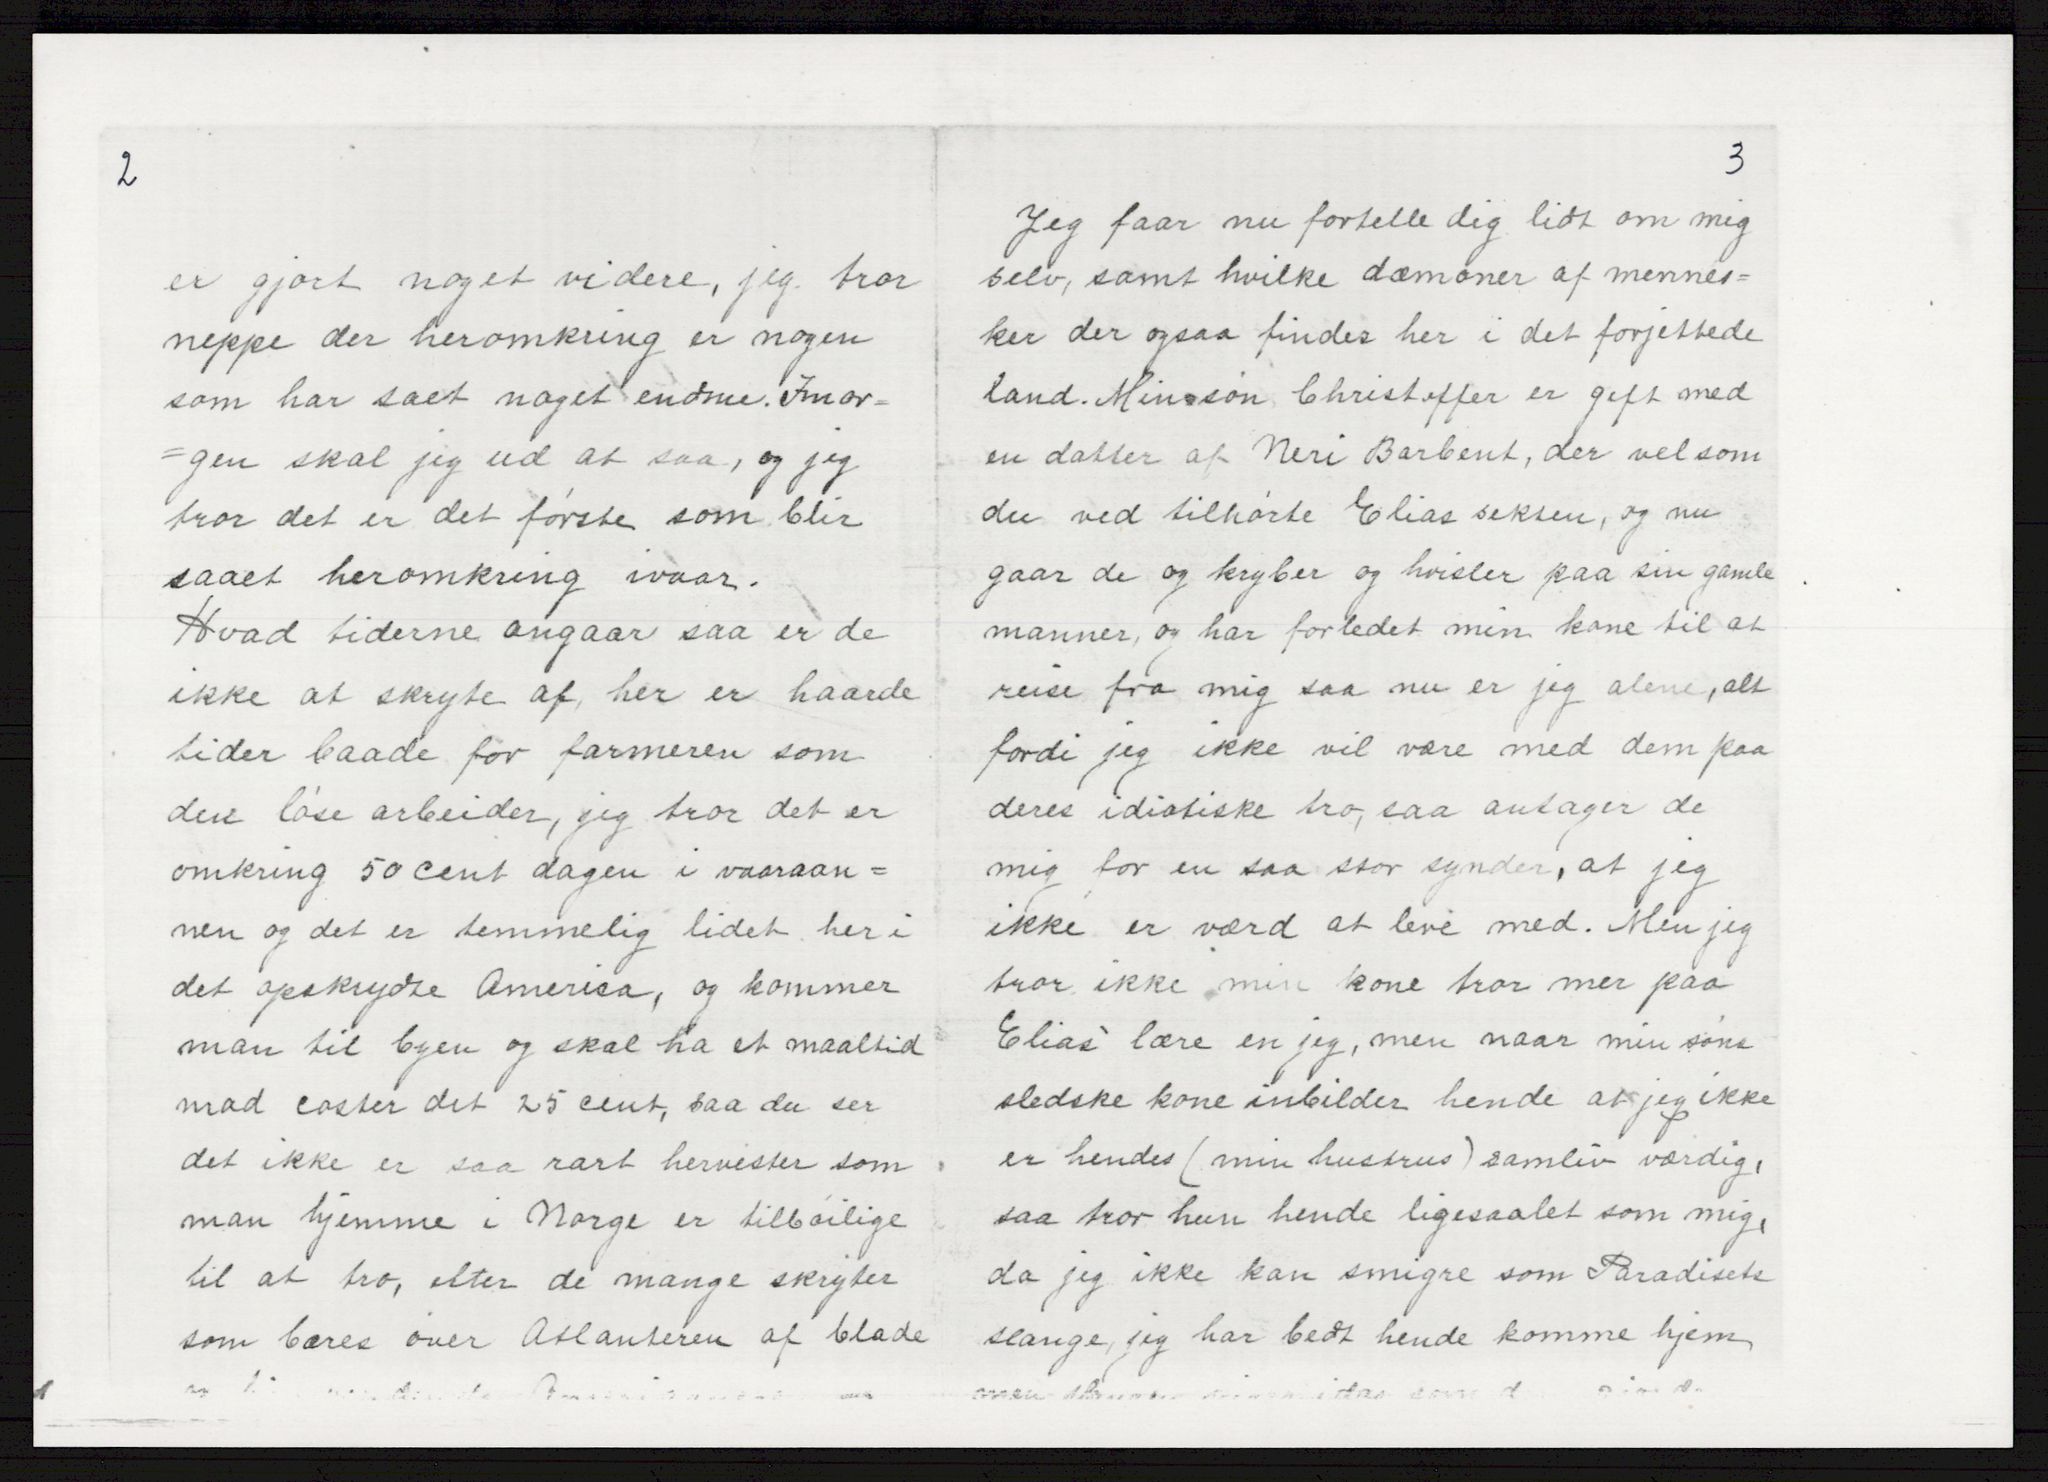 2
er gjort noget videre, jeg tror
neppe der heromkring er nogen
som har saet noget endnu. Imor=
=gen skal jeg ud at saa, og jeg
tror det er det første som blir
saaet heromkring ivaar.
Hvad tiderne angaar saa er de
ikke at skryte af, her er haarde
tider baade for farmeren som
den løse arbeider, jeg tror det er
omkring 50 cent dagen i vaaraan=
nen og det er temmelig lidet her i
det opskrydte America, og kommer
man til byen og skal ha et maaltid
mad coster det 25 cent, saa du ser
det ikke er saa rart hervester som
man hjemme i Norge er tilbøilige
til at tro, efter de mange skryter
som bæres over Atlanteren af blade
3
Jeg faar nu fortelle dig lidt om mig
selv, samt hvilke dæmoner af mennes=
ker der ogsaa findes her i det forjettede
land. Min søn Christoffer er gift med
en datter af Neri Barbent, der vel som
du ved tilhørte Elias sekten, og nu
gaar de og kryber og hvisler paa sin gamle
manner, og har forledet min kone til at
reise fra mig saa nu er jeg alene, alt
fordi jeg ikke vil være med dem paa
deres idiotiske tro, saa antager de
mig for en saa stor synder, at jeg
ikke er værd at leve med. Men jeg
tror ikke min kone tror mer paa
Elias' lære en jeg, men naar min søns
sledske kone inbilder hende at jeg ikke
er hendes (min hustrus) samliv værdig,
saa tror hun hende ligesaalet som mig,
da jeg ikke kan smigre som Paradisets
slange, jeg har bedt hende komme hjem
men